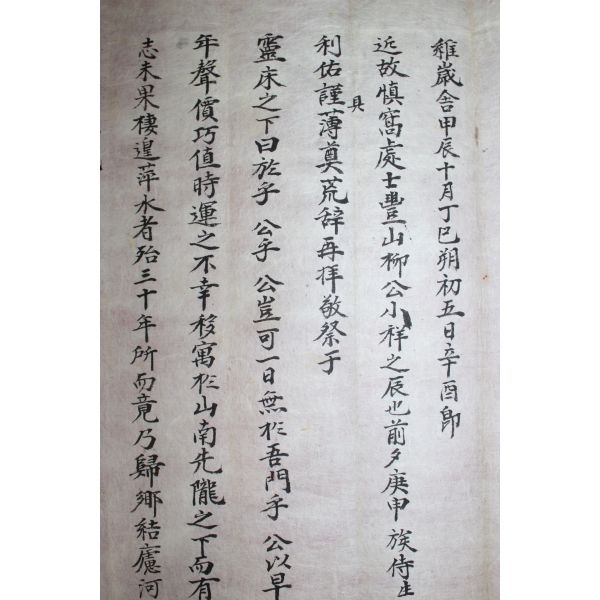 維歲舍甲辰十月丁巳朔初五日辛酉卽
近故愼窩處士豐山柳公小祥之辰也前夕庚申族侍生
利佑謹具薄奠荒辞再拜敬祭于
靈床之下曰於乎 公乎 公豈可一日無於吾門乎 公以早
年聲價巧值時運之不幸移寓於山南先隴之下而有
志未果棲遑萍水者殆三十年所而竟乃歸鄉結廬河